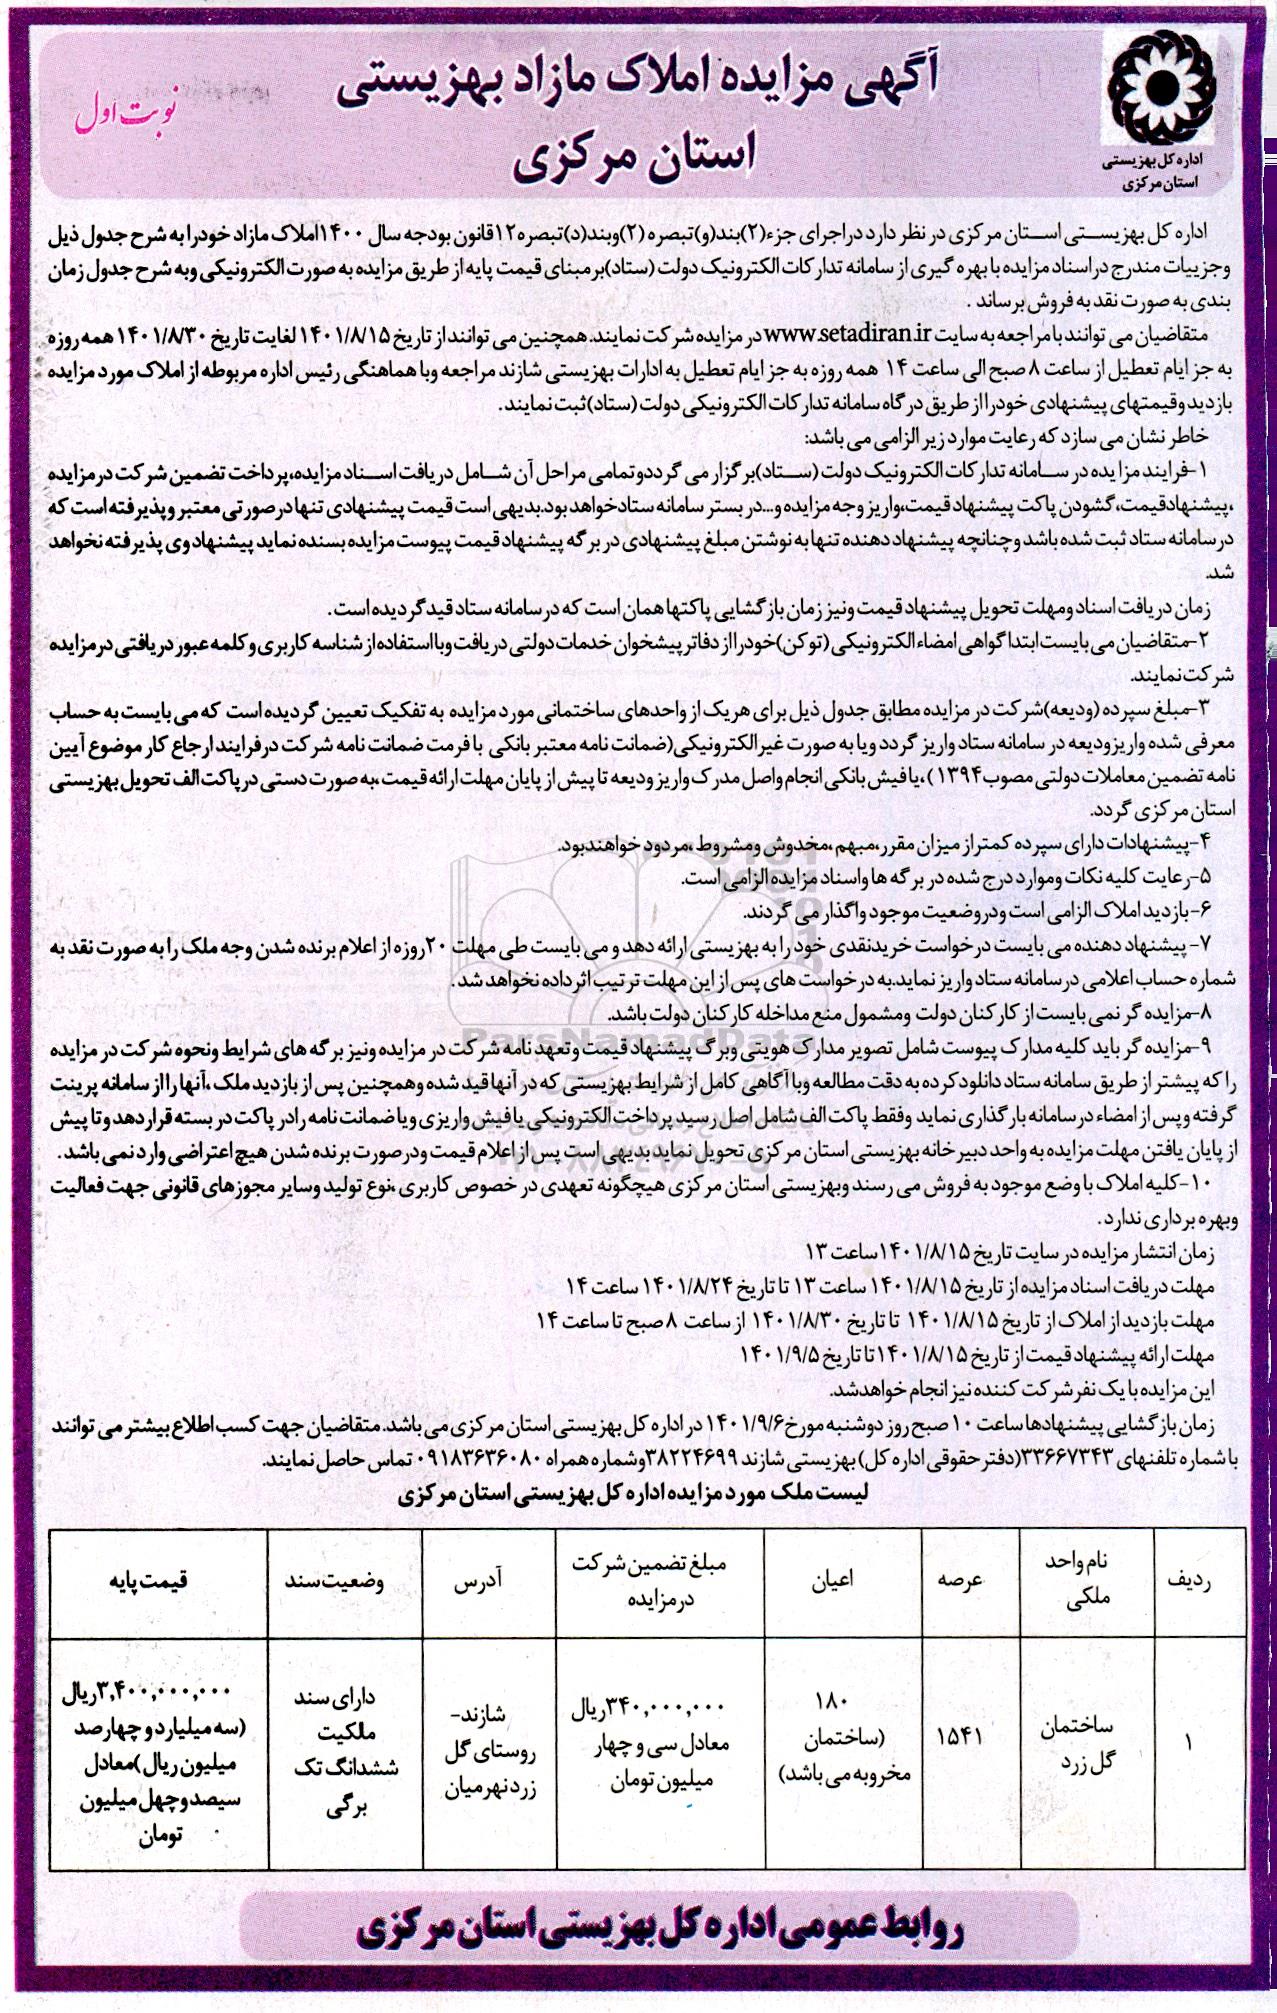 آگهی مزایده املاک مازاد بهزیستی
استان مرکزی
نوبت اول
اداره کل بهزیستی
استان مرکزی
اداره کل بهزیستی استان مرکزی در نظر دارد دراجرای جزء(۲)بند(و)تبصره (۲)وبند(د)تبصره۱۲قانون بودجه سال ۱۴۰۰املاک مازاد خودرا به شرح جدول ذیل
وجزییات مندرج دراسناد مزایده با بهره گیری از سامانه تدارکات الکترونیک دولت (ستاد)برمبنای قیمت پایه از طریق مزایده به صورت الکترونیکی وبه شرح جدول زمان
بندی به صورت نقد به فروش برساند .
متقاضیان می توانند با مراجعه به سایت www.setadiran.ir در مزایده شرکت نمایند. همچنین می توانند از تاریخ ۱۴۰۱/۸/۱۵ لغایت تاریخ ۱۴۰۱/۸/۳۰ همه روزه
به جز ایام تعطیل از ساعت ۸ صبح الی ساعت ۱۴ همه روزه به جز ایام تعطیل به ادارات بهزیستی شازند مراجعه وبا هماهنگی رئیس اداره مربوطه از املاک مورد مزایده
بازدید وقیمتهای پیشنهادی خودرا از طریق درگاه سامانه تدارکات الکترونیکی دولت (ستاد)ثبت نمایند.
خاطر نشان می سازد که رعایت موارد زیر الزامی می باشد:
۱-فرایند مزایده در سامانه تدارکات الکترونیک دولت (ستاد)برگزار می گردد وتمامی مراحل آن شامل دریافت اسناد مزایده،پرداخت تضمین شرکت در مزایده
،پیشنهادقیمت، گشودن پاکت پیشنهاد قیمت،واریز وجه مزایده و...در بستر سامانه ستادخواهد بود.بدیهی است قیمت پیشنهادی تنها درصورتی معتبر وپذیرفته است که
درسامانه ستاد ثبت شده باشد وچنانچه پیشنهاد دهنده تنها به نوشتن مبلغ پیشنهادی در برگه پیشنهاد قیمت پیوست مزایده بسنده نماید پیشنهاد وی پذیرفته نخواهد
شد.
زمان دریافت اسناد ومهلت تحویل پیشنهاد قیمت ونیز زمان بازگشایی پاکتها همان است که در سامانه ستاد قیدگردیده است.
۲-متقاضیان می بایست ابتدا گواهی امضاء الکترونیکی (توکن)خودرا از دفاتر پیشخوان خدمات دولتی دریافت وبا استفاده از شناسه کاربری و کلمه عبور دریافتی در مزایده
شرکت نمایند.
۳-مبلغ سپرده (ودیعه)شرکت در مزایده مطابق جدول ذیل برای هریک از واحدهای ساختمانی مورد مزایده به تفکیک تعیین گردیده است که می بایست به حساب
معرفی شده واریزودیعه در سامانه ستاد واریز گردد ویا به صورت غیرالکترونیکی(ضمانت نامه معتبر بانکی با فرمت ضمانت نامه شرکت درفرایند ارجاع کار موضوع آیین
نامه تضمین معاملات دولتی مصوب ۱۳۹۴)،یا فیش بانکی انجام واصل مدرک واریز ودیعه تا پیش از پایان مهلت ارائه قیمت،به صورت دستی درپاکت الف تحویل بهزیستی
استان مرکزی گردد.
۴-پیشنهادات دارای سپرده کمتراز میزان مقرر،مبهم ،مخدوش ومشروط ،مردود خواهندبود.
۵-رعایت کلیه نکات وموارد درج شده در برگه ها واسناد مزایده الزامی است.
۶-بازدید املاک الزامی است ودروضعیت موجود واگذار می گردند.
۷- پیشنهاد دهنده می بایست درخواست خریدنقدی خود را به بهزیستی ارائه دهد و می بایست طی مهلت ۲۰روزه از اعلام برنده شدن وجه ملک را به صورت نقد به
شماره حساب اعلامی درسامانه ستاد واریز نماید.به درخواست های پس از این مهلت ترتیب اثرداده نخواهد شد.
۸-مزایده گر نمی بایست از کارکنان دولت ومشمول منع مداخله کارکنان دولت باشد.
۹-مزایده گر باید کلیه مدارک پیوست شامل تصویر مدارک هویتی وبرگ پیشنهاد قیمت وتعهد نامه شرکت در مزایده ونیز برگه های شرایط ونحوه شرکت در مزایده
را که پیشتر از طریق سامانه ستاد دانلود کرده به دقت مطالعه وبا آگاهی کامل از شرایط بهزیستی که در آنها قید شده وهمچنین پس از بازدید ملک ،آنها را از سامانه پرینت
گرفته وپس از امضاء درسامانه بارگذاری نماید وفقط پاکت الف شامل اصل رسید پرداخت الکترونیکی یا فیش واریزی ویا ضمانت نامه رادر پاکت در بسته قرار دهد وتا پیش
از پایان یافتن مهلت مزایده به واحد دبیرخانه بهزیستی استان مرکزی تحویل نماید بدیهی است پس از اعلام قیمت ودرصورت برنده شدن هیچ اعتراضی وارد نمی باشد.
۱۰-کلیه املاک با وضع موجود به فروش می رسند وبهزیستی استان مرکزی هیچگونه تعهدی در خصوص کاربری ،نوع تولید وسایر مجوزهای قانونی جهت فعالیت
وبهره برداری ندارد.
زمان انتشار مزایده در سایت تاریخ ۱۴۰۱/۸/۱۵ساعت ۱۳
مهلت دریافت اسناد مزایده از تاریخ ۱۴۰۱/۸/۱۵ ساعت ۱۳ تا تاریخ ۱۴۰۱/۸/۲۴ ساعت ۱۴
مهلت بازدید از املاک از تاریخ ۱۴۰۱/۸/۱۵ تا تاریخ ۱۴۰۱/۸/۳۰ از ساعت ۸ صبح تا ساعت ۱۴
مهلت ارائه پیشنهاد قیمت از تاریخ ۱۴۰۱/۸/۱۵تا تاریخ ۱۴۰۱/۹/۵
این مزایده با یک نفر شرکت کننده نیز انجام خواهدشد.
زمان بازگشایی پیشنهادها ساعت ۱۰ صبح روز دوشنبه مورخ ۱۴۰۱/۹/۶ در اداره کل بهزیستی استان مرکزی می باشد. متقاضیان جهت کسب اطلاع بیشتر می توانند
با شماره تلفنهای ۳۳۶۶۷۳۴۳(دفتر حقوقی اداره کل) بهزیستی شازند ۳۸۲۲۴۶۹۹وشماره همراه ۰۹۱۸۳۶۳۶۰۸۰ تماس حاصل نمایند.
لیست ملک مورد مزایده اداره کل بهزیستی استان مرکزی
ردیف
نام واحد
ملکی
عرصه
اعیان
مبلغ تضمین شرکت
در مزایده
آدرس
وضعیت سند
قیمت پایه
۱
ساختمان
گل زرد
۱۵۴۱
۱۸۰
(ساختمان
مخروبه می باشد)
۳۴۰,۰۰۰,۰۰۰ریال
معادل سی و چهار
میلیون تومان
شازند-
روستای گل
زرد نهرمیان
دارای سند
مالکیت
ششدانگ تک
برگی
۳,۴۰۰,۰۰۰,۰۰۰ریال
(سه میلیارد و چهارصد
میلیون ریال)معادل
سیصدوچهل میلیون
تومان
روابط عمومی اداره کل بهزیستی استان مرکزی
ParsNamadData